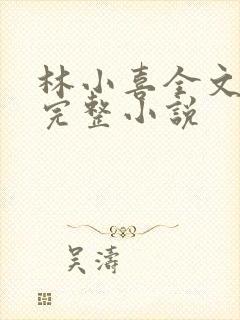 林小喜全文
完整小説
吴濤